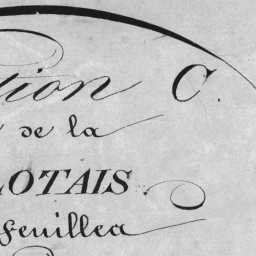 tion C.
de la
LOTAIS.
feuillea